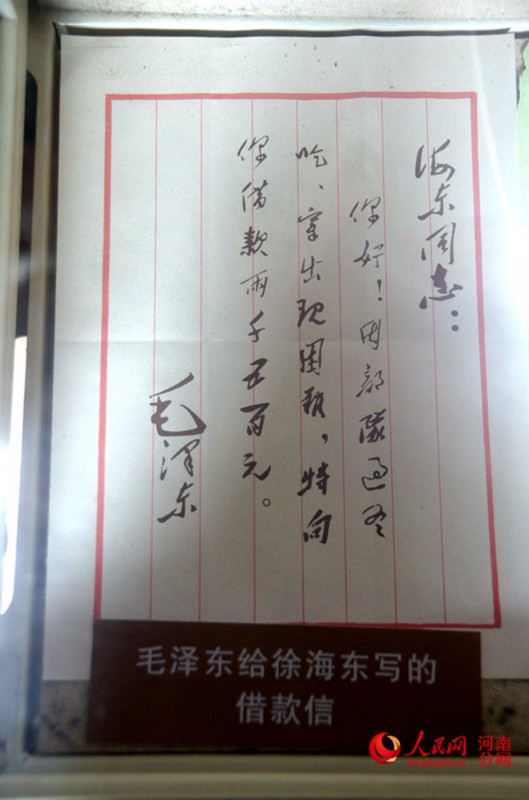 海东同志：
你好！因部隊过冬
吃、穿出现困难，特向
你借款兩千五百元。
毛泽东
毛泽东给徐海东写的
借款信
人民网
河南
分网